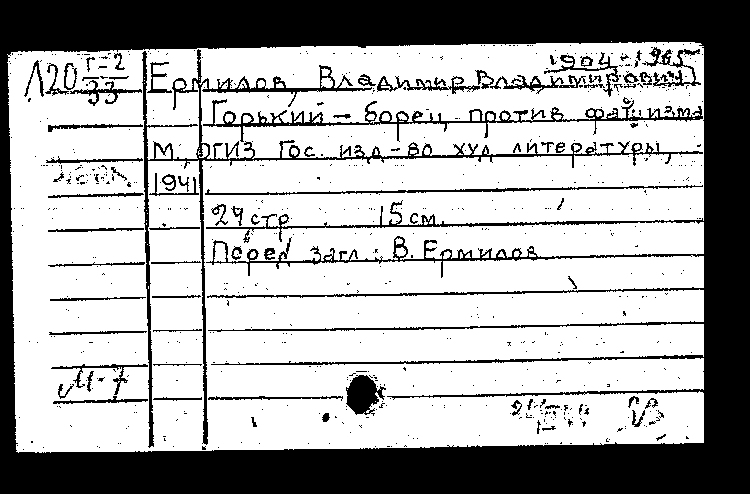 1904-1965
Л20 Г-2/33 Ермилов, Владимир Владимирович)
Горький – борец против фашизма
М., ОГИЗ Гос. изд-во худ литературы,
1941.
24 стр. 15 см.
Перед загл.: В. Ермилов
М-7